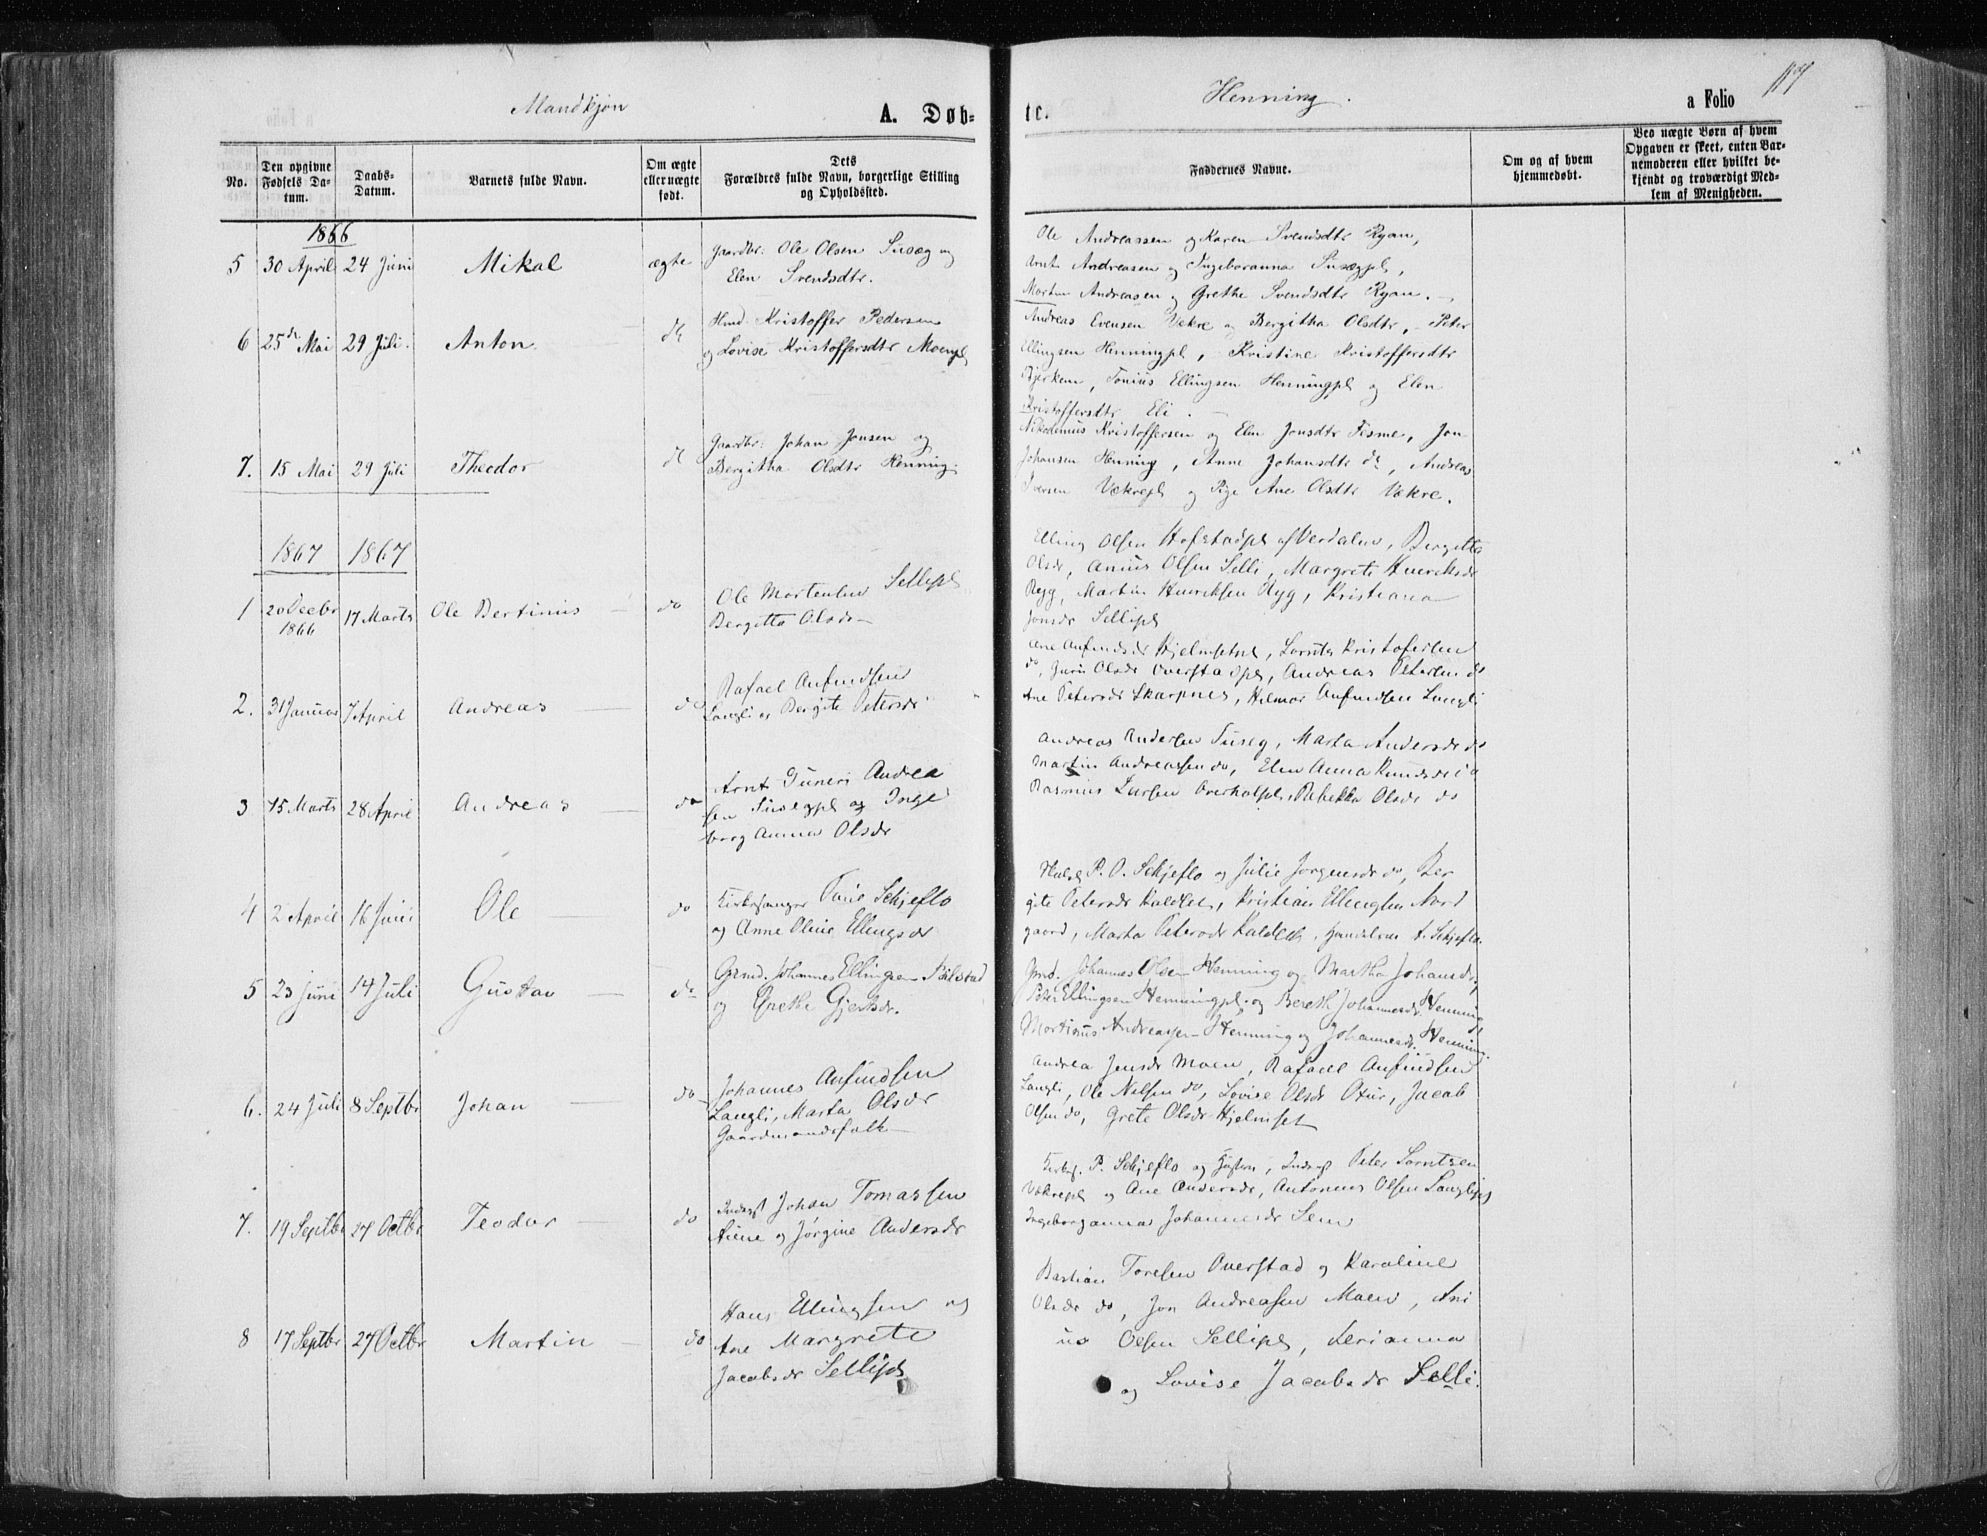 Mandkjøn
A. Døb-
te.
Henning.
a Folio
117
No.
Den opgivne Fødsels Da-tum.
Daabs-Datum.
Barnets fulde Navn.
Om ægte eller uægte født.
Dets Forældres fulde Navn, borgerlige Stilling og Opholdssted.
Faddernes Navne.
Om og af hvem hjemmedøbt.
Ved uægte Børn af hvem Opgaven er skeet, enten Bar-nemoderen eller hvilket be-kjendt og troværdigt Med-lem af Menigheden.
1866
5 30 April 24 Juni Mikal ægte
Gaardbr: Ole Olsen Susæg og
Elen Svendsdtr.
Ole Andreassen og Karen Svendsdtr Ryan,
Arnt Andreasen og Ingeboranna Susægpl,
Morten Andreasen og Grethe Svendsdtr Ryan.
6 25de Mai 29 Juli. Anton do
Hmd. Kristoffer Pedersen
og Lovise Kristoffersdtr Moenpl
Andreas Evensen Vekre og Bergitha Olsdtr, Peter
Ellingsen Henningpl, Kristine Kristoffersdtr
Bjerkem, Tonius Ellingsen Henningpl og Elen
Kristoffersdtr Eli.
7. 15 Mai 29 Juli Theodor do
Gaardbr: Johan Jonsen og
Bergitha Olsdtr Henning.
Nikodemus Kristoffersen og Elen Jonsdtr Tisme, Jon
Johansen Henning, Anne Johansdtr do, Andreas
Iversen Vekrepl og Pige Ane Olsdtr Vekre.
1867 1867
1 20 Decbr 1866 17 Marts Ole Bertinus do
Ole Mortensen Sellipl
Bergitta Olsdr
Elling Olsen Hofstadpl af Verdalen, Bergitta
Olsdr, Anius Olsen Selli, Margrete Henriksdr
Ryg, Martin Henriksen Ryg, Kristiana
Jonsdr Sellipl
2. 31 Januar 7 April Andreas do
Rafael Anfindsen
Langli og Bergite Petersdr
Ane Anfindsdr Hjelmsetpl, Lorents Kristofersen
do, Guru Olsdr Overstadpl, Andreas Petersen do
Ane Petersdr Skarpnes, Hilmar Anfindsen Langli
3 15 Marts 28 April Andreas do
Arnt Guneri Andrea
sen Susegpl og Inge
borg Anna Olsdr
Andreas Andersen Suseg, Marta Andersdr do
Martin Andreassen do, Elen Anna
Rasmus Larsen Overholpl, Rebekka Olsdr do
4 2 April 16 Juni Ole do
Kirkesanger Paul Schjeflo
og Anne Oline Ellingsdr
P. O. Schjeflo og Julie Jørgensdr do, Ber
gite Petersdr Kaldlek, Kristian Ellingsen Nord
gaard, Marta Petersdr Kaldlek, A. Schjeflo.
5 23 Juni 14 Juli Gustav do
Grmd. Johannes Ellingsen
og Grethe Gjertsdr.
Gmd. Johannes Olsen Henning og Martha Johansdr,
Peter Ellingsen Henningpl. og Bereth Johannesdr. Henning
Mortinus Andreassen Henning og Johannesdr. Henning.
6. 24 Juli 8 Septbr Johan do
Johannes Anfindsen
Langli, Marta Olsdr
Gaardmandsfolk
Andrea Jensdr Moen, Rafael Anfindsen
Langli, Ole Nilsen do, Lovise Olsdr Oxur, Jacob
Olsen do, Grete Olsdr Hjelmset
7. 19 Septbr 27 Octbr Teodor do
Inderst Johan Tomassen
Aune og Jørgine Andersdr
Kirkes. P. Schjeflo og Hustru, Inderst Peter Lorntsen
Vekrepl og Ane Andersdr, Antonius Olsen Langlipl
Ingeborganna Johannesdr Sem
8 17 Septbr 27 Octbr Martin do
Hans Ellingsen og
Ane Margrete
Jacobsdr Sellipl
Bastian Toresen Overstad og Karoline
Olsdr do, Jon Andreasen Moen, Ani
us Olsen Sellipl, Serianna
og Lovise Jacobsdr Selli.